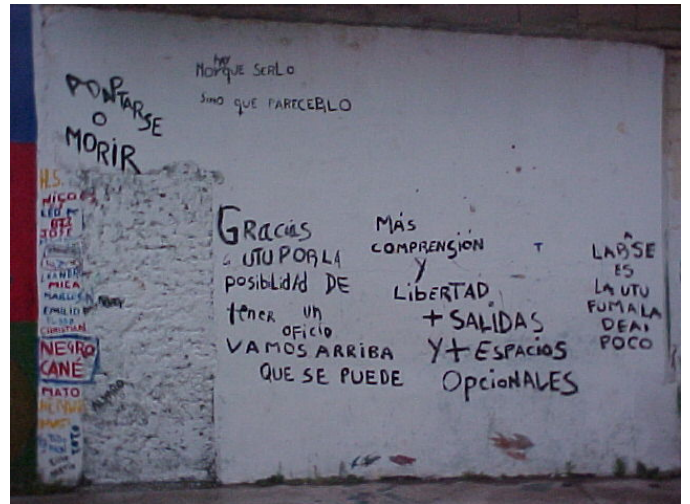 PORTARSE
O
MORIR
HAY
NO QUE SERLO
SINO QUE PARECERLO
H.S.
NICO
LEO
JOSE
MICA
EMILIO
CHRISTIAN
NEGRO
CANÉ
MATO
TOTO
GRACIAS
A UTU POR LA
POSIBILIDAD DE
tener un
OFICIO
VAMOS ARRIBA
QUE SE PUEDE
MÁS
COMPRENSIÓN
Y
LIBERTAD
+ SALIDAS
Y + ESPACIOS
OPCIONALES
T
A
LABSE
ES
LA UTU
FUMALA
DEAI
POCO